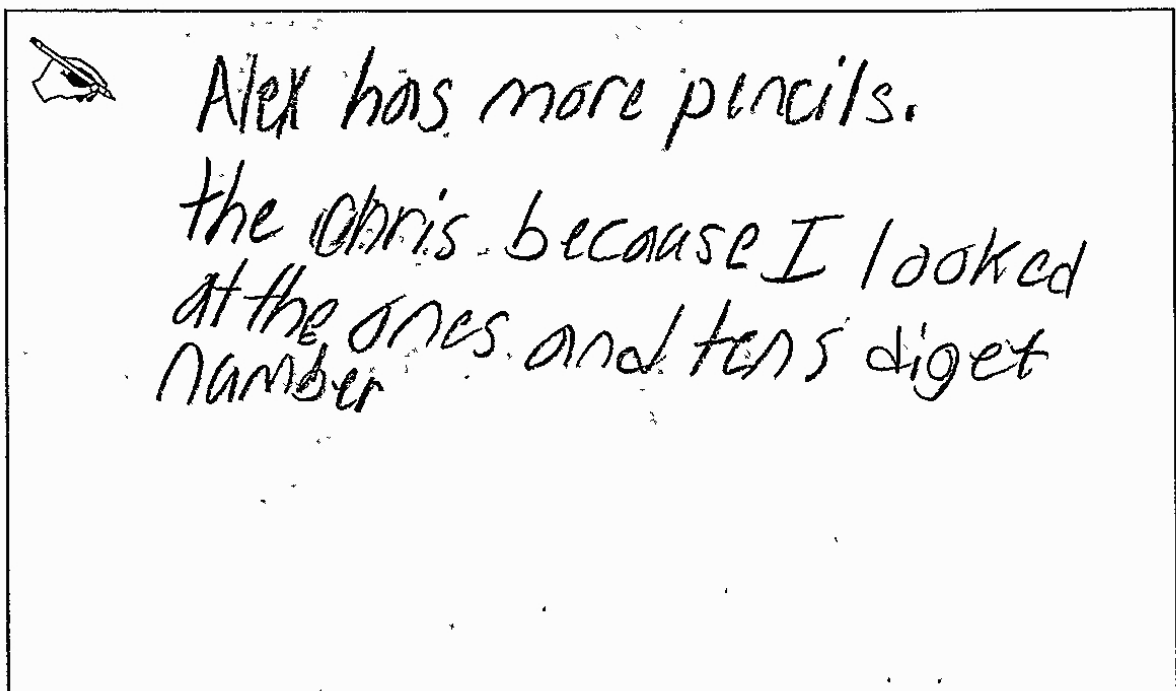 Alex has more pencils.
the chris because I looked
at the ones and tens diget
number